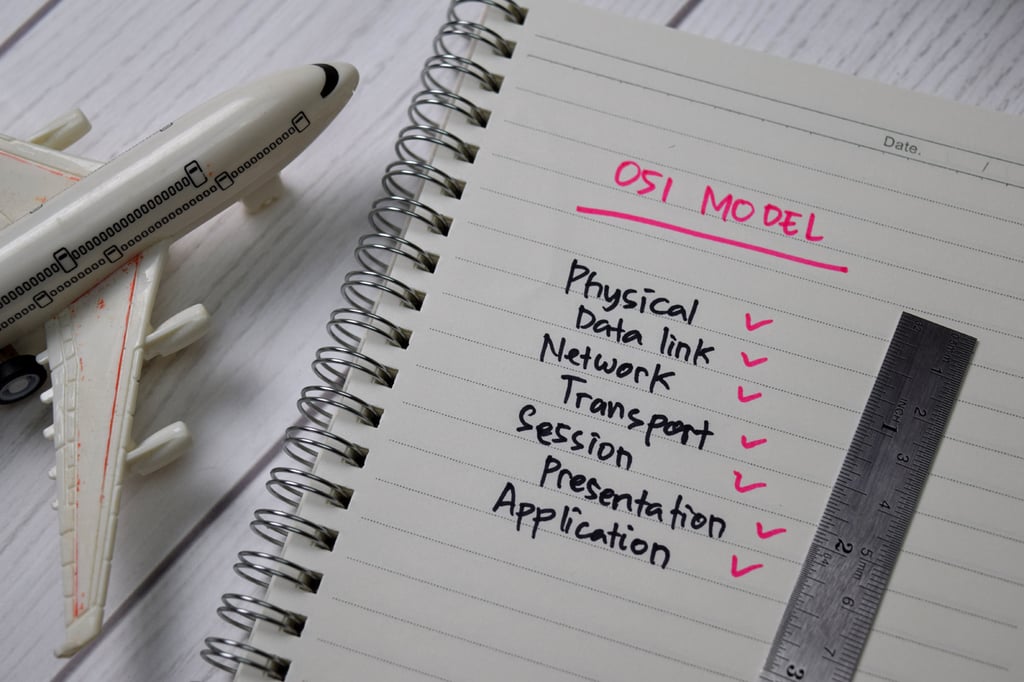 Date. /
OSI MODEL
Physical ✓
Data link ✓
Network ✓
Transport ✓
Session ✓
Presentation ✓
Application ✓
1
INCH 1
2
3
4
2
64
5mm
6
7
3